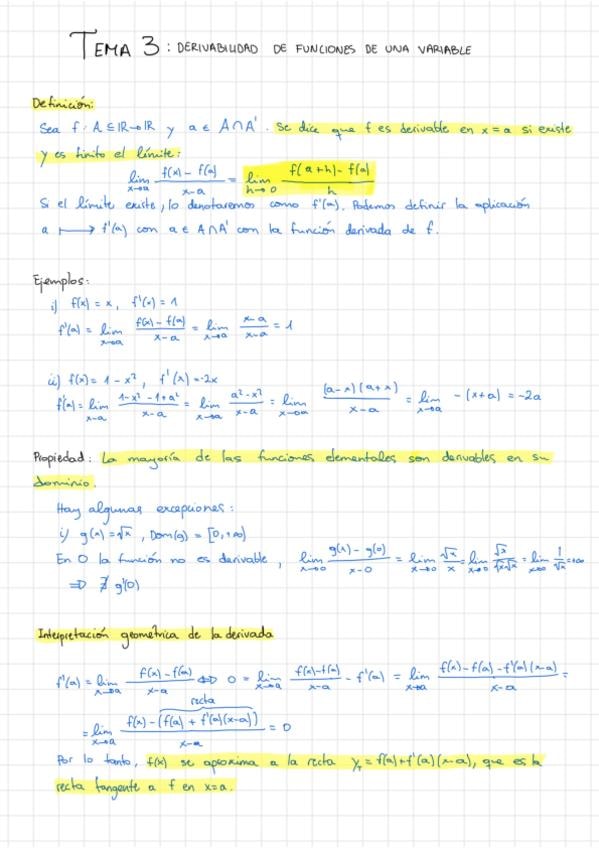 TEMA 3: DERIVABILIDAD DE FUNCIONES DE UNA VARIABLE
Definición:
Sea f: A ⊆ ℝ→ℝ y a ∈ A∩A'. Se dice que f es derivable en x=a si existe
y es finito el límite:
lim_{x→a} (f(x) - f(a))/(x-a) = lim_{h→0} (f(a+h) - f(a))/h
Si el límite existe, lo denotaremos como f'(a). Podemos definir la aplicación
a ⟼ f'(a) con a ∈ A∩A' con la función derivada de f.
Ejemplos:
i) f(x) = x, f'(x) = 1
f'(a) = lim_{x→a} (f(x) - f(a))/(x-a) = lim_{x→a} (x-a)/(x-a) = 1
ii) f(x) = 1 - x², f'(x) = -2x
f'(a) = lim_{x→a} (1-x² - 1+a²)/(x-a) = lim_{x→a} (a²-x²)/(x-a) = lim_{x→a} (a-x)(a+x)/(x-a) = lim_{x→a} -(x+a) = -2a
Propiedad: La mayoría de las funciones elementales son derivables en su
dominio.
Hay algunas excepciones:
i) g(x) = √x, Dom(g) = [0,+∞)
En 0 la función no es derivable, lim_{x→0} (g(x) - g(0))/(x-0) = lim_{x→0} √x/x = lim_{x→0} √x/(√x√x) = lim_{x→0} 1/√x = +∞
⇒ ∄ g'(0)
Interpretación geométrica de la derivada
f'(a) = lim_{x→a} (f(x) - f(a))/(x-a) ⇔ 0 = lim_{x→a} (f(x)-f(a))/(x-a) - f'(a) = lim_{x→a} (f(x) - f(a) - f'(a)(x-a))/(x-a) =
recta
= lim_{x→a} (f(x) - (f(a) + f'(a)(x-a)))/(x-a) = 0
Por lo tanto, f(x) se aproxima a la recta y_T = f(a)+f'(a)(x-a), que es la
recta tangente a f en x=a.